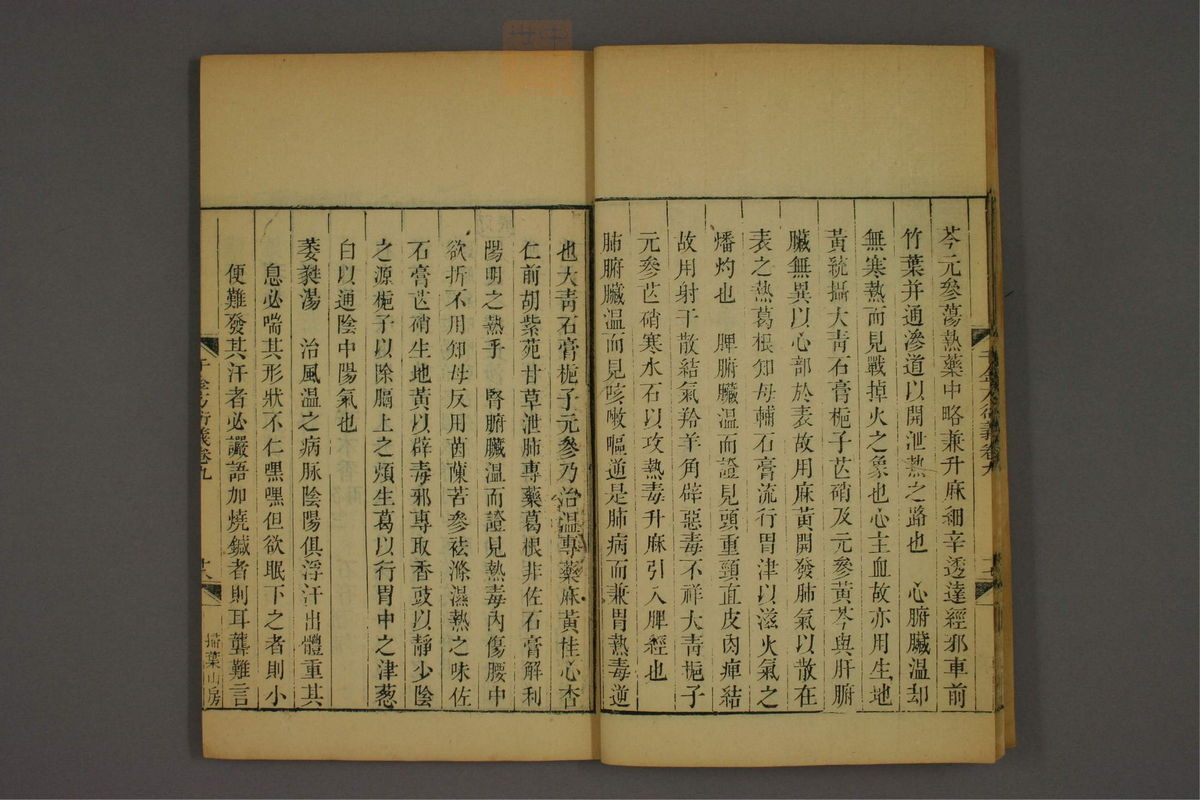 芩元參蕩熱藥中略兼升麻細辛透達經邪車前
竹葉并通滲道以開泄熱之路也　心腑臟温却
無寒熱而見戰掉火之象也心主血故亦用生地
黃統攝大青石膏梔子芒硝及元參黃芩與肝腑
臟無異以心部於表故用麻黃開發肺氣以散在
表之熱葛根知母輔石膏流行胃津以滋火氣之
燔灼也　脾腑臟温而證見頭重頸直皮肉痺結
故用射干散結氣羚羊角辟惡毒不祥大青梔子
元參芒硝寒水石以攻熱毒升麻引入脾經也
肺腑臟温而見咳嗽嘔逆是肺病而兼胃熱毒逆
也大青石膏梔子元參乃治温專藥麻黃桂心杏
仁前胡紫苑甘草泄肺專藥葛根非佐石膏解利
陽明之熱乎　腎腑臟温而證見熱毒內傷腰中
欲折不用知母反用茵蔯苦參祛滌濕熱之味佐
石膏芒硝生地黃以辟毒邪專取香豉以靜少陰
之源梔子以除膈上之煩生葛以行胃中之津蔥
白以通陰中陽氣也
萎蕤湯　治風温之病脉陰陽俱浮汗出體重其
息必喘其形狀不仁嘿嘿但欲眠下之者則小
便難發其汗者必讝語加燒鍼者則耳聾難言
千金方衍義卷九
掃葉山房